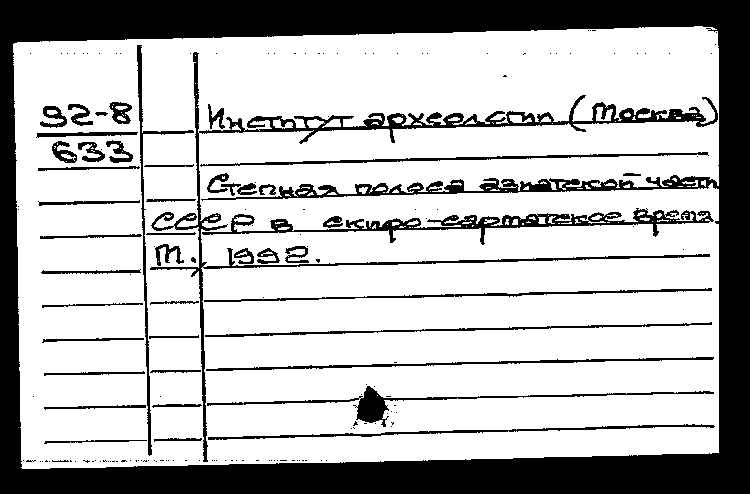 92-8
633
Институт археологии (Москва)
Степная полоса азиатской части
СССР в скифо-сарматское время.
М., 1992.